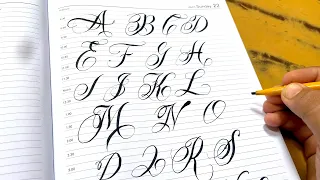 Sunday 22
A B C D
E F G H
I J K L
M N O
P Q R S